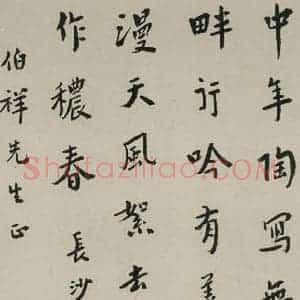 中年陶寫無
畔行吟有美
漫天風絮去
作穠春 長沙
伯祥先生正
Shufaziliao.COM